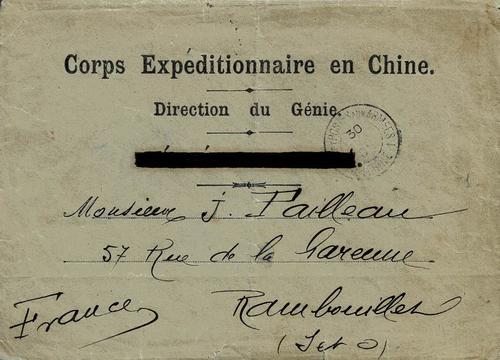 Corps Expéditionnaire en Chine.
Direction du Génie.
30
Monsieur J. Pailleau
57 Rue de la Garenne
Rambouillet
(S et O)
France